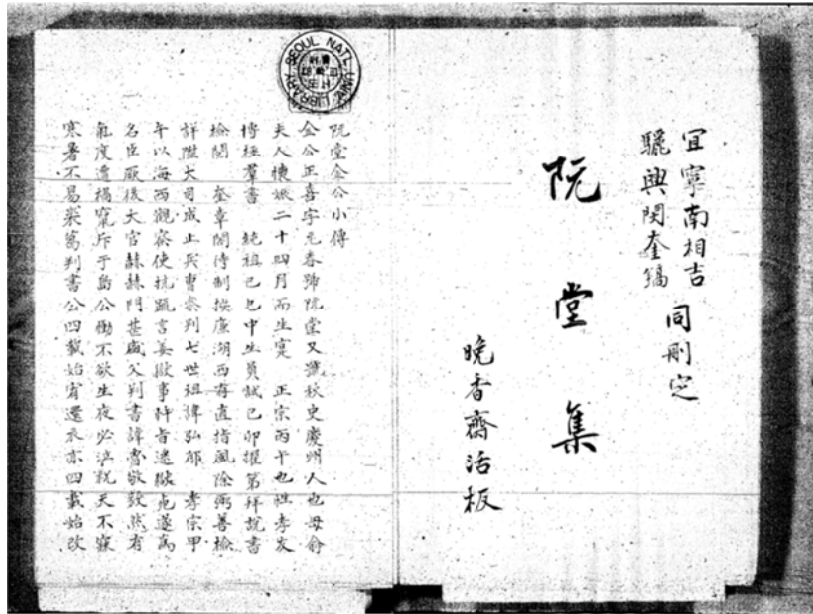 宜寧南相吉
驪興閔奎鎬
同刪定
阮堂集
晩香齋活板
SEOUL NAT'L UNIV. LIBRARY
阮堂金公小傳
金公正喜字元春號阮堂又號秋史慶州人也母俞
夫人懷娠二十四月而生寔 正宗丙午也性孝友
博極羣書 純祖己巳中生員試己卯擢第拜說書
檢閱 奎章閣待制按廉湖西存直指風除弼善檢
詳陞大司成止兵曹參判七世祖諱弘郁 孝宗甲
午以海西觀察使抗疏言姜獄事忤旨逮獄死遂爲
名臣厥後大官赫赫門甚盛父判書諱魯敬毅然有
氣度遭禍竄斥于島公慟不欲生夜必泣祝天不寐
寒暑不易判書公四載始宥還衣亦四載始改